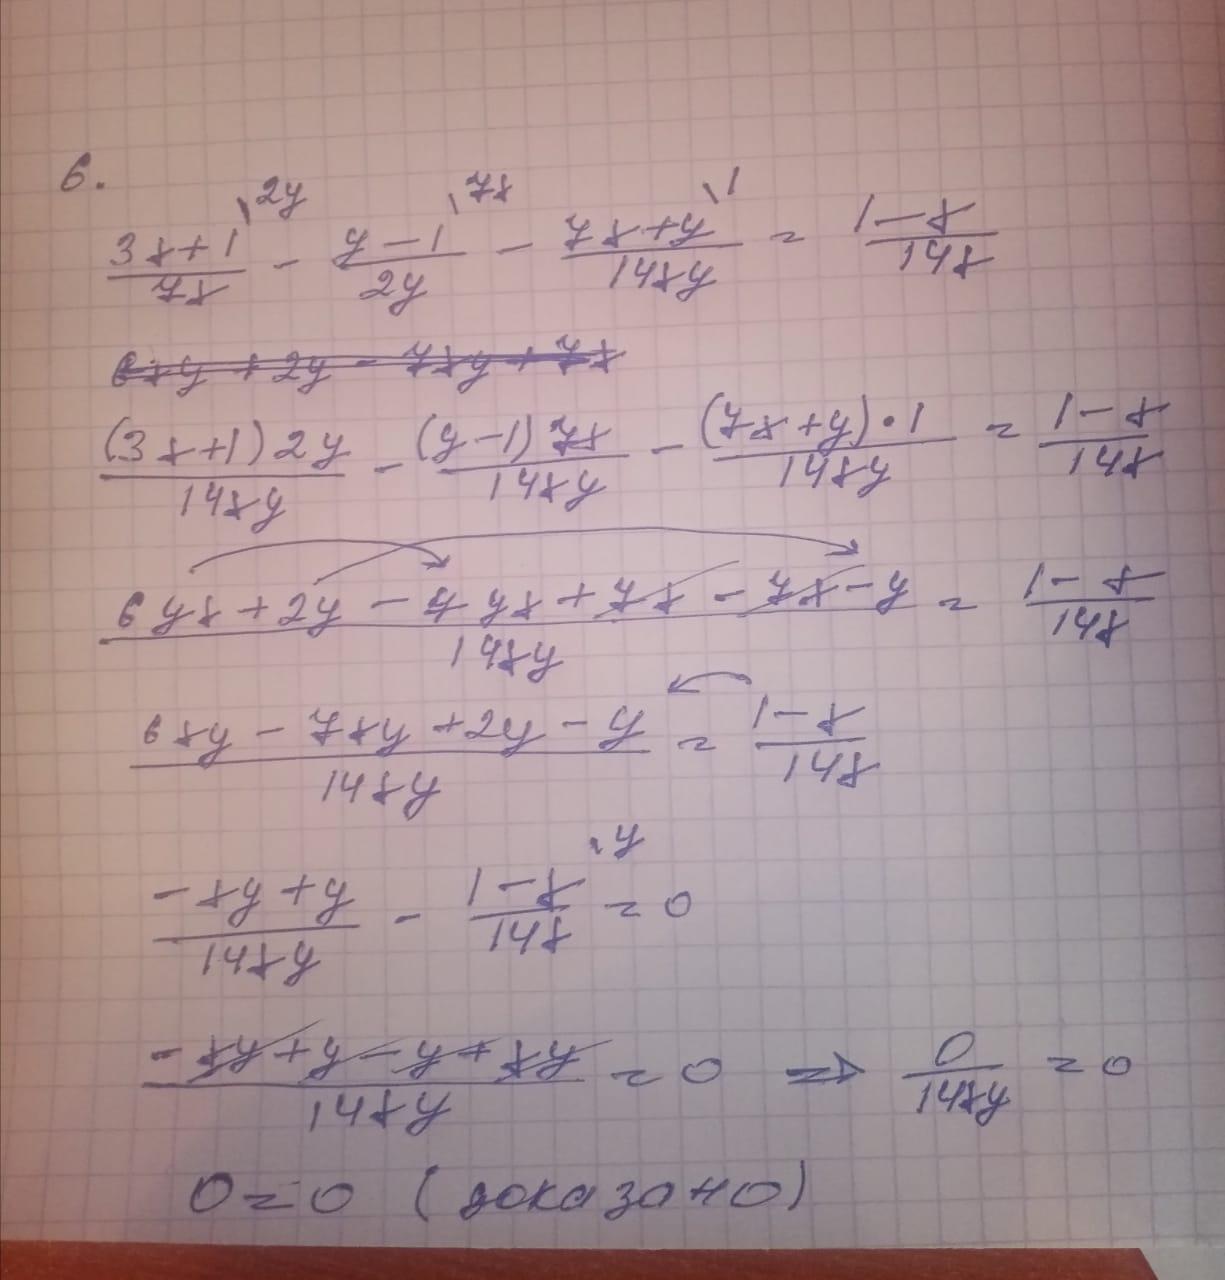 6.
\frac{3x+1^{\backslash 2y}}{7x} - \frac{y-1^{\backslash 7x}}{2y} - \frac{7x+y^{\backslash 1}}{14xy} = \frac{1-x}{14x}
6xy + 2y - 7xy + 7x
\frac{(3x+1)2y}{14xy} - \frac{(y-1)7x}{14xy} - \frac{(7x+y)·1}{14xy} = \frac{1-x}{14x}
\frac{6yx+2y-7yx+7x-7x-y}{14xy} = \frac{1-x}{14x}
\frac{6xy-7xy+2y-y}{14xy} = \frac{1-x}{14x}
\frac{-xy+y}{14xy} - \frac{1-x^{\backslash y}}{14x} = 0
\frac{-xy+y-y+xy}{14xy} = 0 ⇒ \frac{0}{14xy} = 0
0=0 (доказано)